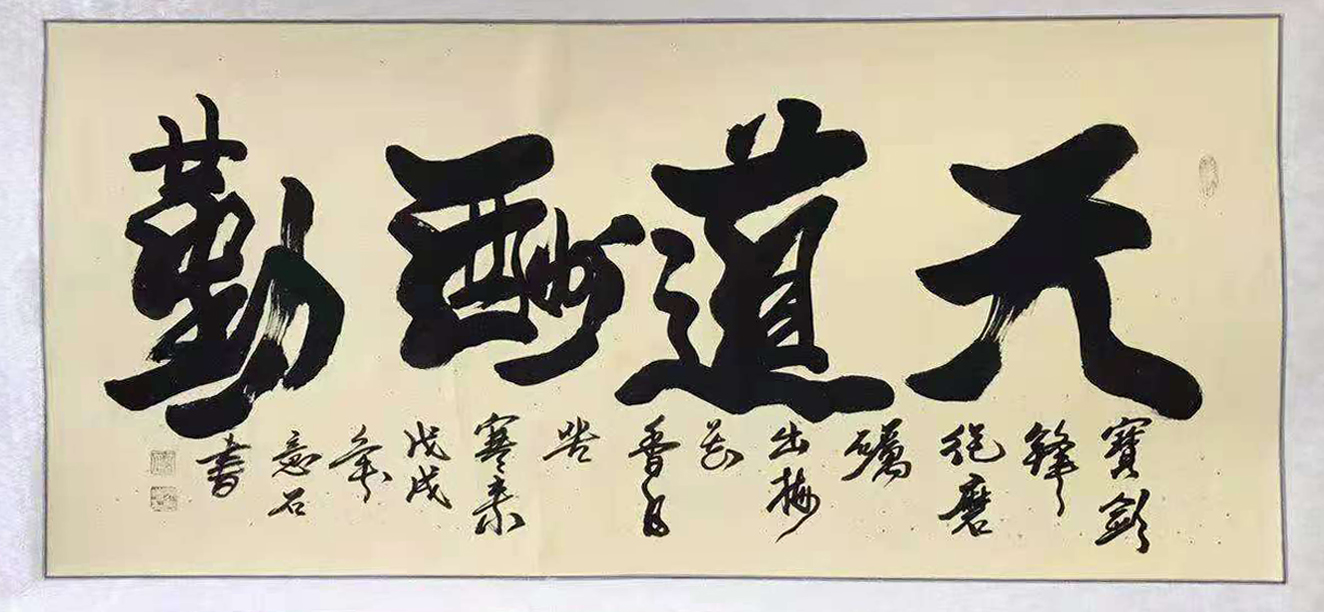 天道酬勤
寶劍
鋒
從磨
礪
出梅
花
香自
苦
寒來
戊戌
年
意石
書